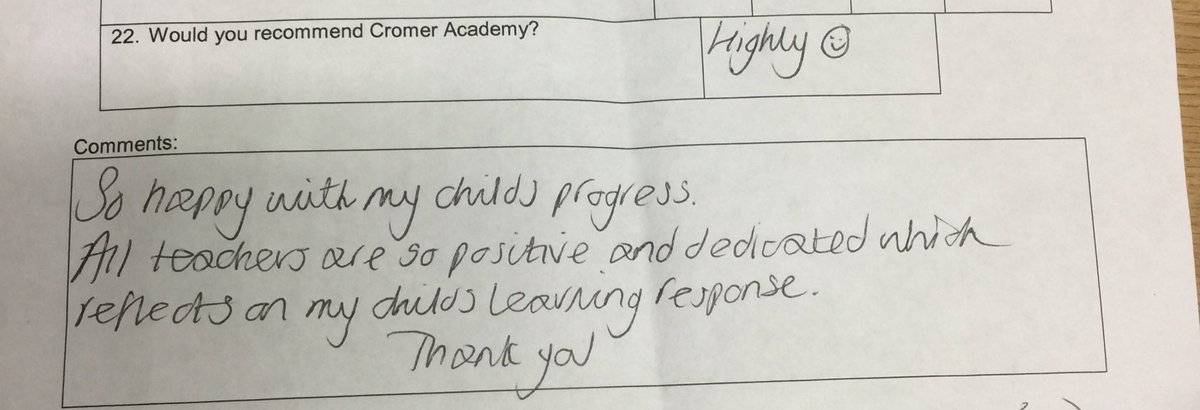 22. Would you recommend Cromer Academy?
Highly ☺
Comments:
So happy with my childs progress.
All teachers are so positive and dedicated which
reflects on my childs learning response.
Thank you